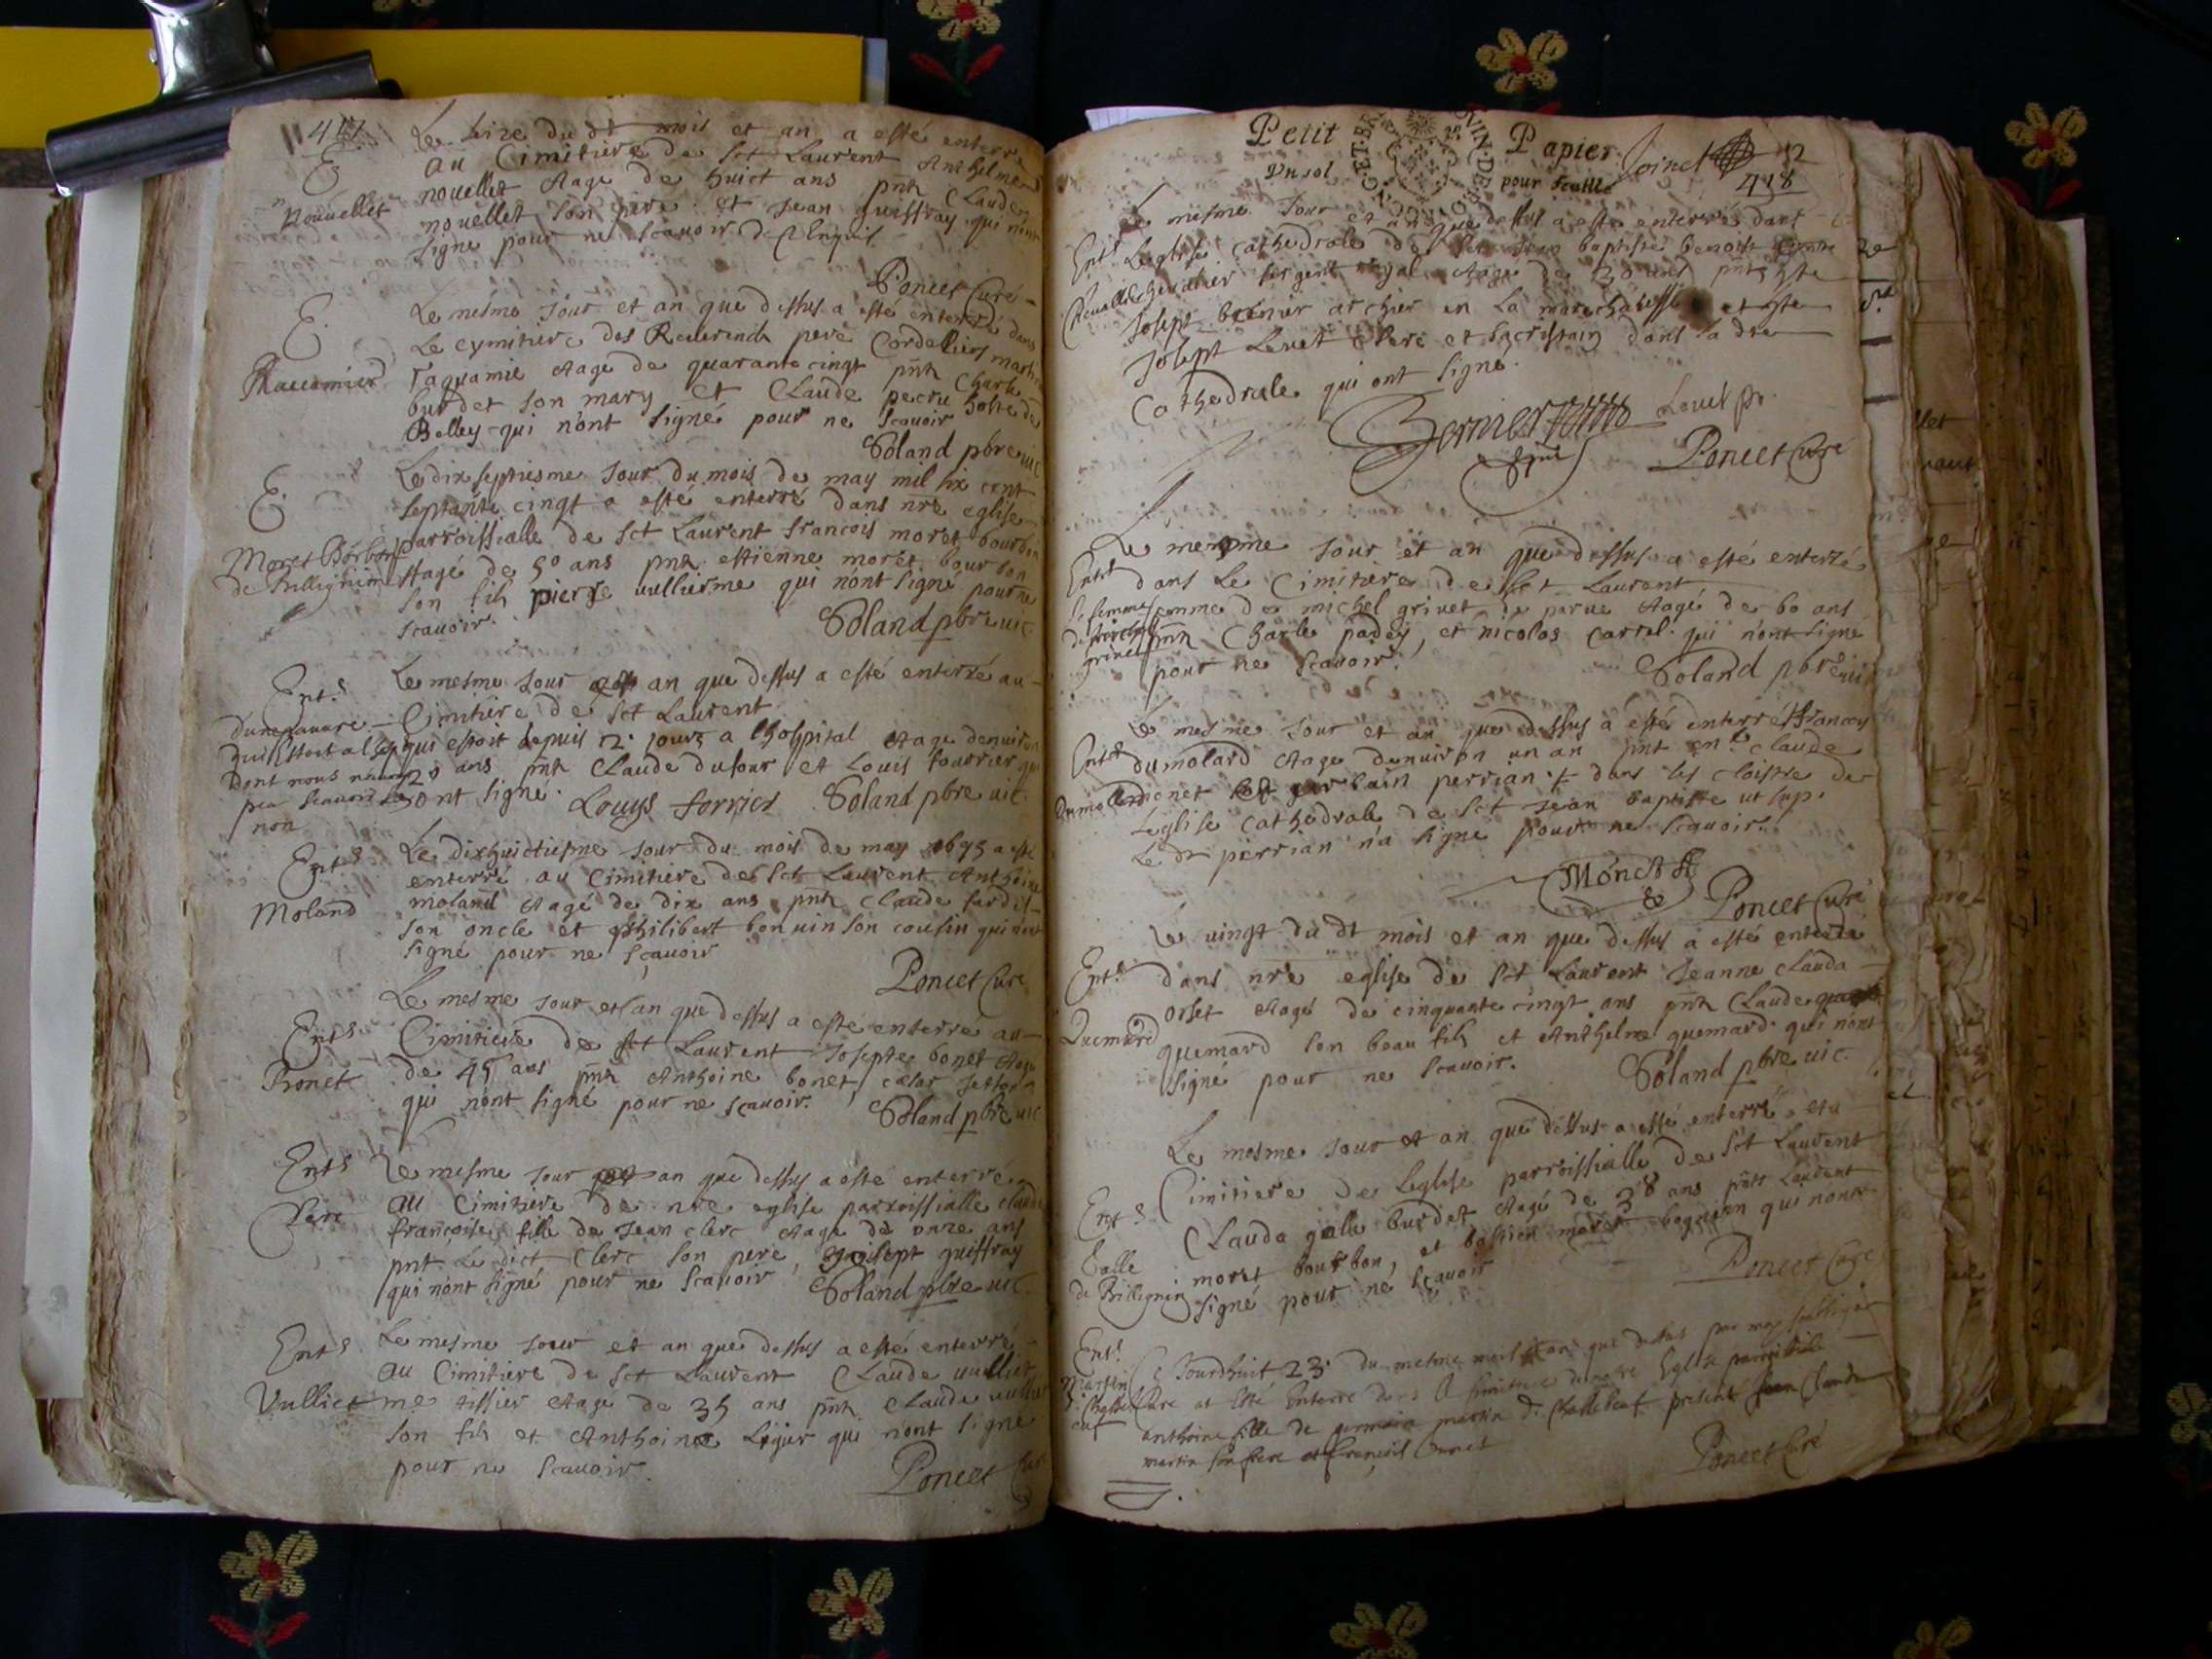 417
Le seize du dt mois et an a esté enterré
E
au Cimitiere de sct Laurent Anthelme
Nouuellet
nouellet Aage de huict ans pnts Claude
nouellet son pere et Jean guiffray qui nont
signe pour ne scauoir de
Poncet Curé
Le mesme Jour et an que dessus a esté enterré dans
E.
Le cymitiere des Reuerends pere Cordeliers
Raccamier
raquamie Aage de quarante cinqt pnts Charle
burdet son mary et Claude pecru hoste de
Belley qui n'ont signé pour ne scauoir
Soland pbre uic
Le dix septiesme Jour du mois de may mil six cent
E.
septante cinqt a esté enterré dans nre eglise
Moret Borbon
parroissialle de sct Laurent francois moret bourbon
Aagé de 50 ans pnts estienne moret bourbon
son fils pierre uullierme qui nont signé pour ne
scauoir.
Soland pbre uic.
Ent.
Le mesme Jour et an que dessus a esté enterré au
Cimitiere de sct Laurent
qui estoit depuis 12. jours a lhospital Aage denuiron
dont nous
20 ans pnts Claude dufour et Louis fourrier qui
peu scauoir le
non
ont signe.
Louys forrier
Soland pbre uic.
Ent.
Le dixhuictiesme Jour du mois de may 1675 a esté
enterré au Cimitiere de sct Laurent Anthoine
Moland
moland Aagé de dix ans pnts Claude
son oncle et philibert bonuin son cousin qui nont
signé pour ne scauoir
Poncet Cure
Le mesme Jour et an que dessus a esté enterre au
Ent.
Cimitiere de sct Laurent Josepte bonet Aage
Bonet
de 45 ans pnts Anthoine bonet, cesar
qui nont signé pour ne scauoir.
Soland pbre uic
Ent.
Le mesme Jour et an que dessus a esté enterré
Clerc
au Cimitiere de nre eglise parroissialle claude
francoise fille de Jean clerc Aage de onze ans
pnt Le dict Clerc son pere, Joseph guiffray
qui nont signé pour ne scauoir
Soland pbre uic.
Ent.
Le mesme Jour et an que dessus a esté enterré
au Cimitiere de sct Laurent Claude uulliet
Vulliet
me tissier Aage de 35 ans pnts Claude uulliet
son fils et Anthoine Liger qui n'ont signé
pour ne scauoir.
Poncet Cure
Petit Papier
Vn sol pour feuille
418
Le mesme Jour et an que dessus a esté enterrés dans
Ent.
Leglise cathedrale de sct Jean baptiste benoist
Cheuallier
sergent royal Aage de 30 ans pnts hste
Joseph bernier archier en la marechaussée et hste
Joseph Leuet clerc et sacristain dans la dte
Cathedrale qui ont signé.
Bernier
Leuet pr.
Poncet Curé
Le mesme Jour et an que dessus a esté enterré
Ent.
dans Le Cimitiere de sct Laurent
la femme
femme de michel griuet de parue Aagé de 60 ans
de michel
griuet
pnts Charle padey, et nicolas cartel qui n'ont signé
pour ne scauoir.
Soland pbre uic
Le mesme Jour et an que dessus a esté enterré francoy
Ent.
dumolard Aage denuiron un an pnt claude
Dumolard
monet perrian + dans les cloistre de
Leglise cathedrale de sct Jean baptiste ut sup.
Le dt perrian n'a signé pour ne scauoir.
Monet
Poncet Curé
Le uingt du dt mois et an que dessus a esté enterré
Ent.
dans nre eglise de sct Laurent Jeanne Clauda
orset Aagé de cinquante cinqt ans pnts Claude
Quemard
quemard son beau fils et Anthelme quemard qui nont
signé pour ne scauoir.
Soland pbre uic.
Le mesme Jour et an que dessus a esté enterré au
Ent.
Cimitiere de Leglise parroissialle de sct Laurent
Galle
Clauda galle burdet Aagé de 38 ans pnts Laurent
de Billignin
moret bourbon, et bastien moret qui nont
signé pour ne scauoir
Poncet Curé
Ent.
Ce Jourdhuit 23. du mesme mois et an que dessus
Martin
Cure at Esté Enterre dans le simitiere de nostre Eglise parroissialle
anthoine fille de germain martin present Jean Claude
martin son frere et francois
Poncet Curé